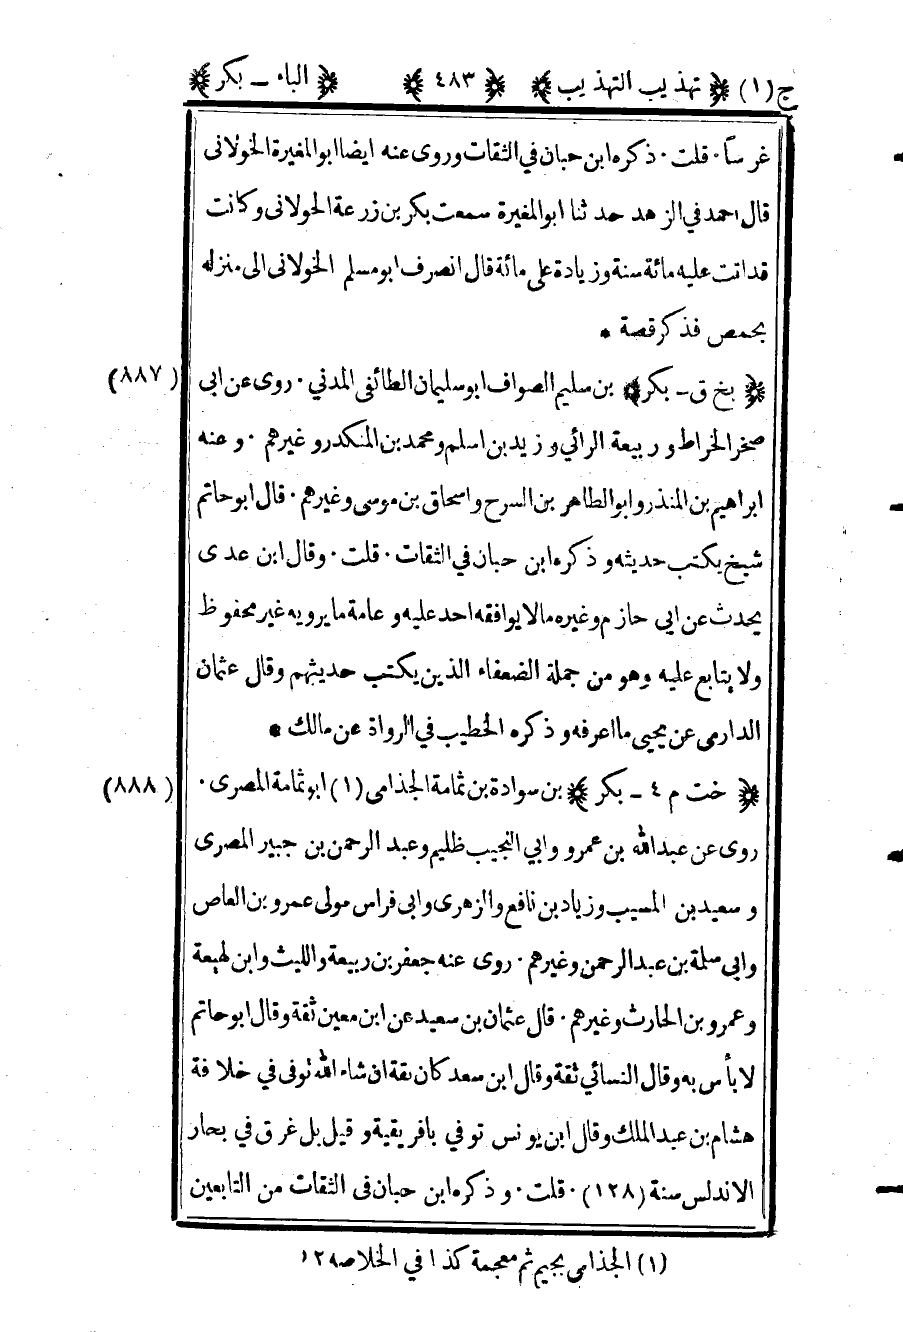 ج (١) ﴿ تهذيب التهذيب ﴾ ﴿ ٤٨٣ ﴾ ﴿ الباء ـ بكر ﴾
غرساً ٠ قلت ٠ ذكره ابن حبان في الثقات وروى عنه ايضا ابو المغيرة الخولانى
قال احمد في الزهد حدثنا ابو المغيرة سمعت بكر بن زرعة الخولانى وكانت
قد اتت عليه مائة سنة وزيادة على مائة قال انصرف ابو مسلم الخولانى الى منزله
بحمص فذكر قصة *
﴿ بخ ق ـ بكر ﴾ بن سليم الصواف ابو سليمان الطائفى المدني ٠ روى عن ابي (٨٨٧)
صخر الخراط و ربيعة الرائي و زيد بن اسلم ومحمد بن المنكدر و غيرهم ٠ و عنه
ابراهيم بن المنذر وابو الطاهر بن السرح واسحاق بن موسى وغيرهم ٠ قال ابو حاتم
شيخ يكتب حديثه و ذكره ابن حبان في الثقات ٠ قلت ٠ وقال ابن عدى
يحدث عن ابي حازم وغيره مالا يوافقه احد عليه و عامة ما يرويه غير محفوظ
ولا يتابع عليه وهو من جملة الضعفاء الذين يكتب حديثهم وقال عثمان
الدارمى عن يحيى ما اعرفه و ذكره الخطيب في الرواة عن مالك *
﴿ خت م ٤ ـ بكر ﴾ بن سوادة بن ثمامة الجذامى (١) ابو ثمامة المصرى ٠ (٨٨٨)
روى عن عبد الله بن عمرو وابي النجيب ظليم وعبد الرحمن بن جبير المصرى
و سعيد بن المسيب وزياد بن نافع والزهرى وابى فراس مولى عمرو بن العاص
وابي سلمة بن عبد الرحمن وغيرهم ٠ روى عنه جعفر بن ربيعة والليث وابن لهيعة
وعمرو بن الحارث وغيرهم ٠ قال عثمان بن سعيد عن ابن معين ثقة وقال ابو حاتم
لا بأس به وقال النسائي ثقة وقال ابن سعد كان ثقة ان شاء الله توفى في خلافة
هشام بن عبد الملك وقال ابن يونس توفي بافريقية و قيل بل غرق في بحار
الاندلس سنة (١٢٨) ٠ قلت ٠ و ذكره ابن حبان فى الثقات من التابعين
(١) الجذامى بجيم ثم معجمة كذا في الخلاصه ١٢